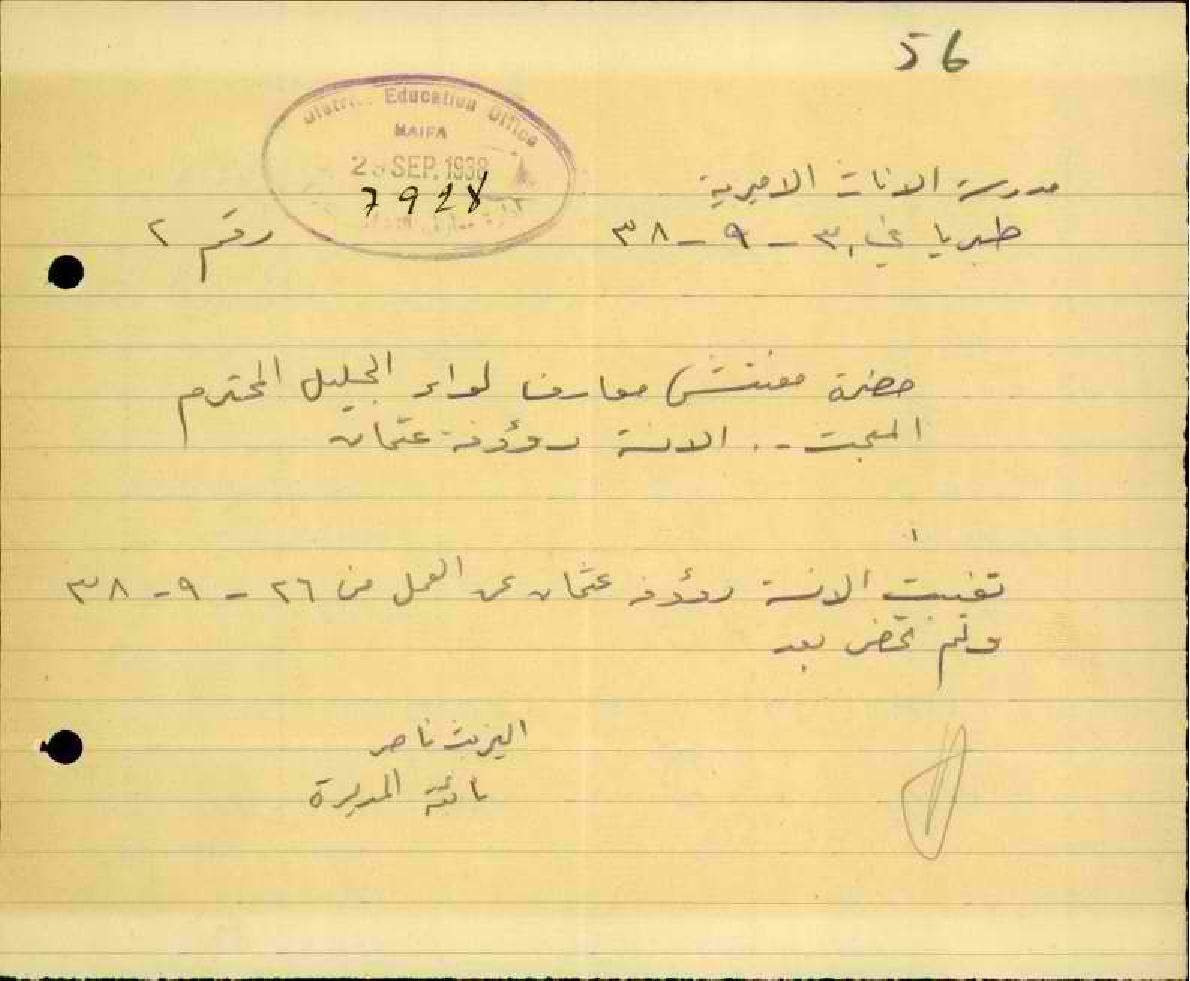 56
District Education Office
HAIFA
SEP. 1938
7928
مدرسة الاناث الاميرية
طبريا في ٣٠ - ٩ - ٣٨
رقم ٢
حضرة مفتش معارف لواء الجليل المحترم
المبحث .. الانسة رؤوفه عثمان
١
تغيبت الانسة رؤوفه عثمان عن العمل من ٢٦ - ٩ - ٣٨
ولم تحضر بعد
اليزبث ناصر
نائبة المديرة